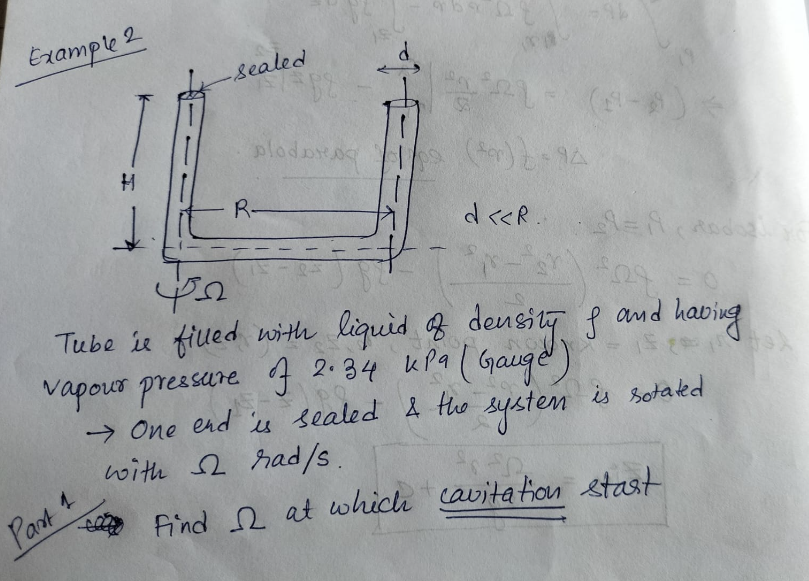 Example 2
sealed
d
H
R
d << R.
Ω
Tube is filled with liquid of density ρ and having
vapour pressure of 2.34 kPa (Gauge)
→ One end is sealed & the system is rotated
with Ω rad/s.
Part 1
Find Ω at which cavitation start